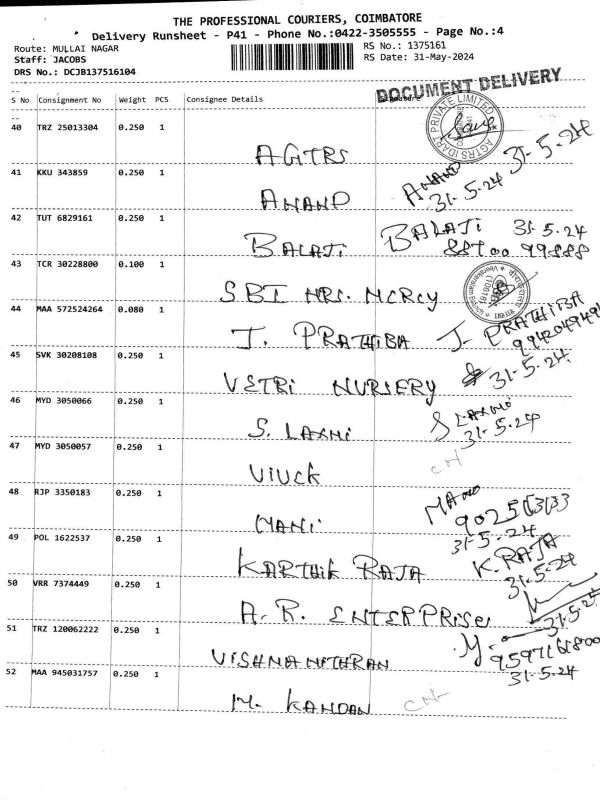 THE PROFESSIONAL COURIERS, COIMBATORE
Delivery Runsheet - P41 - Phone No.:0422-3505555 - Page No.:4
Route: MULLAI NAGAR
Staff: JACOBS
DRS No.: DCJB137516104
RS No.: 1375161
RS Date: 31-May-2024
DOCUMENT DELIVERY
S No Consignment No Weight PCS Consignee Details Signature
40 TRZ 25013304 0.250 1
AGTRS 31-5-24
AGTRS IDART PRIVATE LIMITED
41 KKU 343859 0.250 1
ANAND ANAND
31-5-24
42 TUT 6829161 0.250 1
BALAJI BALAJI 31-5-24
99888
43 TCR 30228800 0.100 1
SBI MRS. MERCY
44 MAA 572524264 0.080 1
J. PRATHIBA J. PRATHIBA
45 SVK 30208108 0.250 1
VETRI NURSERY 31-5-24
46 MYD 3050066 0.250 1
S. LAXMI S LAXMI
31-5-24
47 MYD 3050057 0.250 1
VIUCK CN
48 RJP 3350183 0.250 1
MANI MANO
31-5-24
49 POL 1622537 0.250 1
KARTHIK RAJA K. RAJA
31-5-24
50 VRR 7374449 0.250 1
A. R. ENTERPRISES 31-5-24
51 TRZ 120062222 0.250 1
VISHNAMITHRAN M.
31-5-24
52 MAA 945031757 0.250 1
M. KANDAN CN